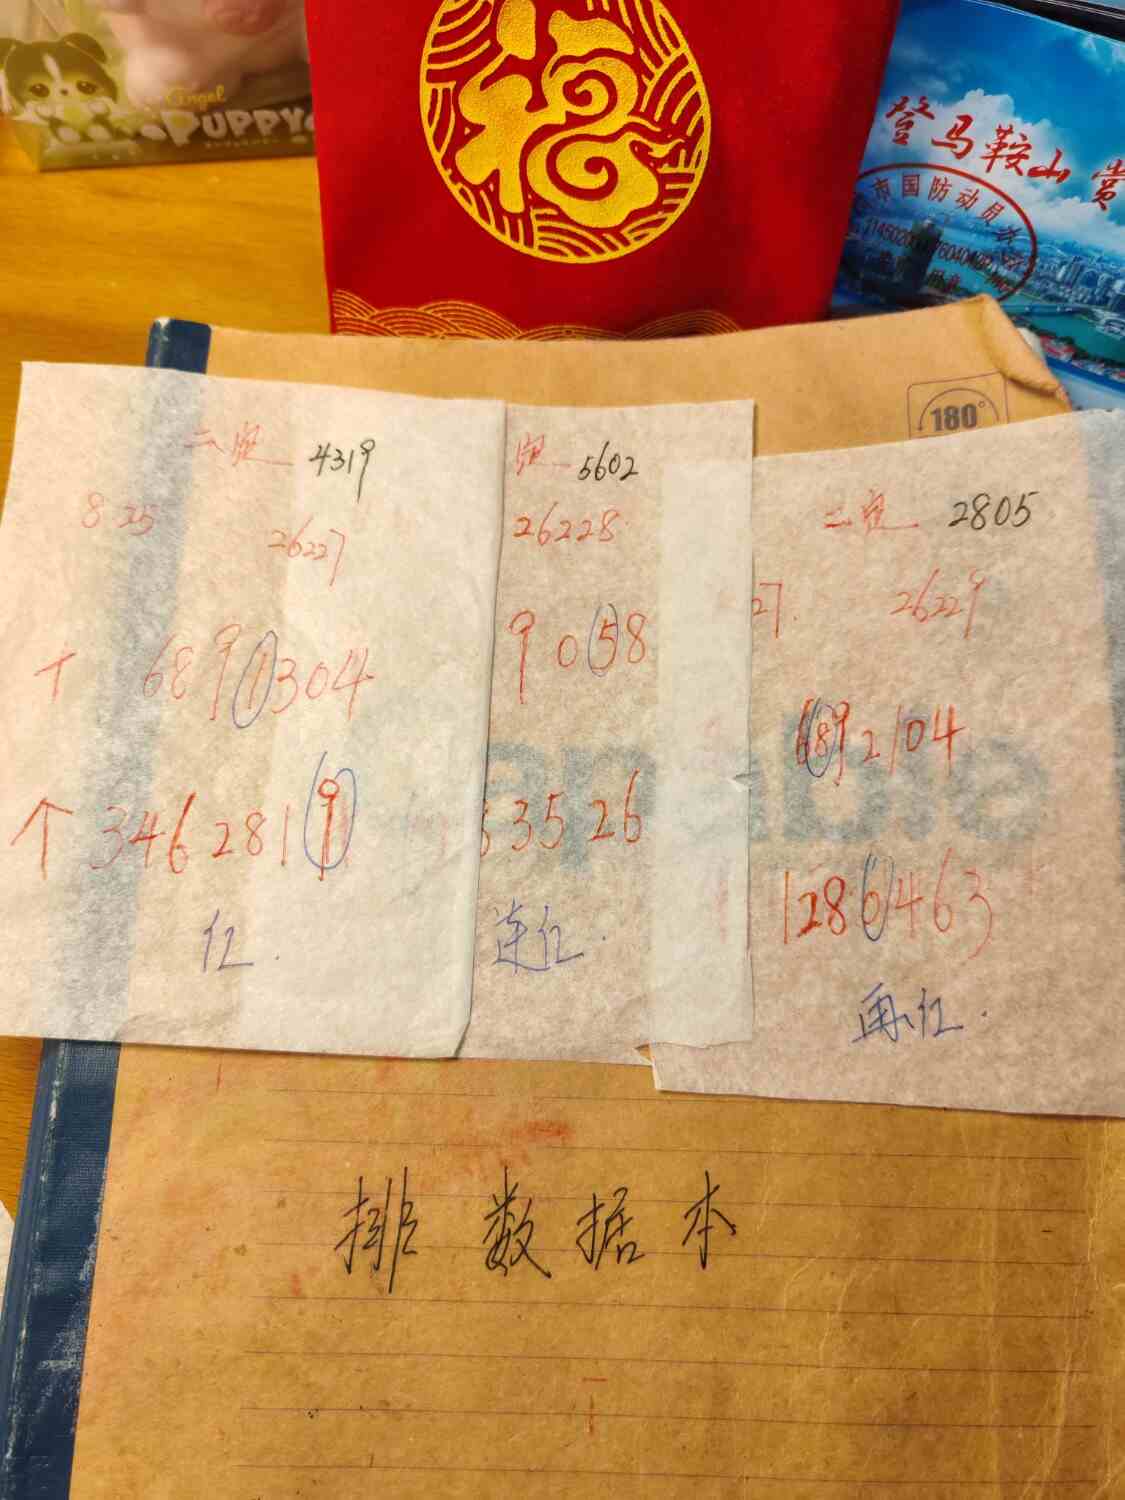 Angel
PUPPY
福
登马鞍山赏
市国防动员
180°
4319
8 25
26227
十 6891304
个 3462819
红.
5602
26228
9058
3526
连红.
2805
27.
26229
6892104
1286463
再红.
排数据本